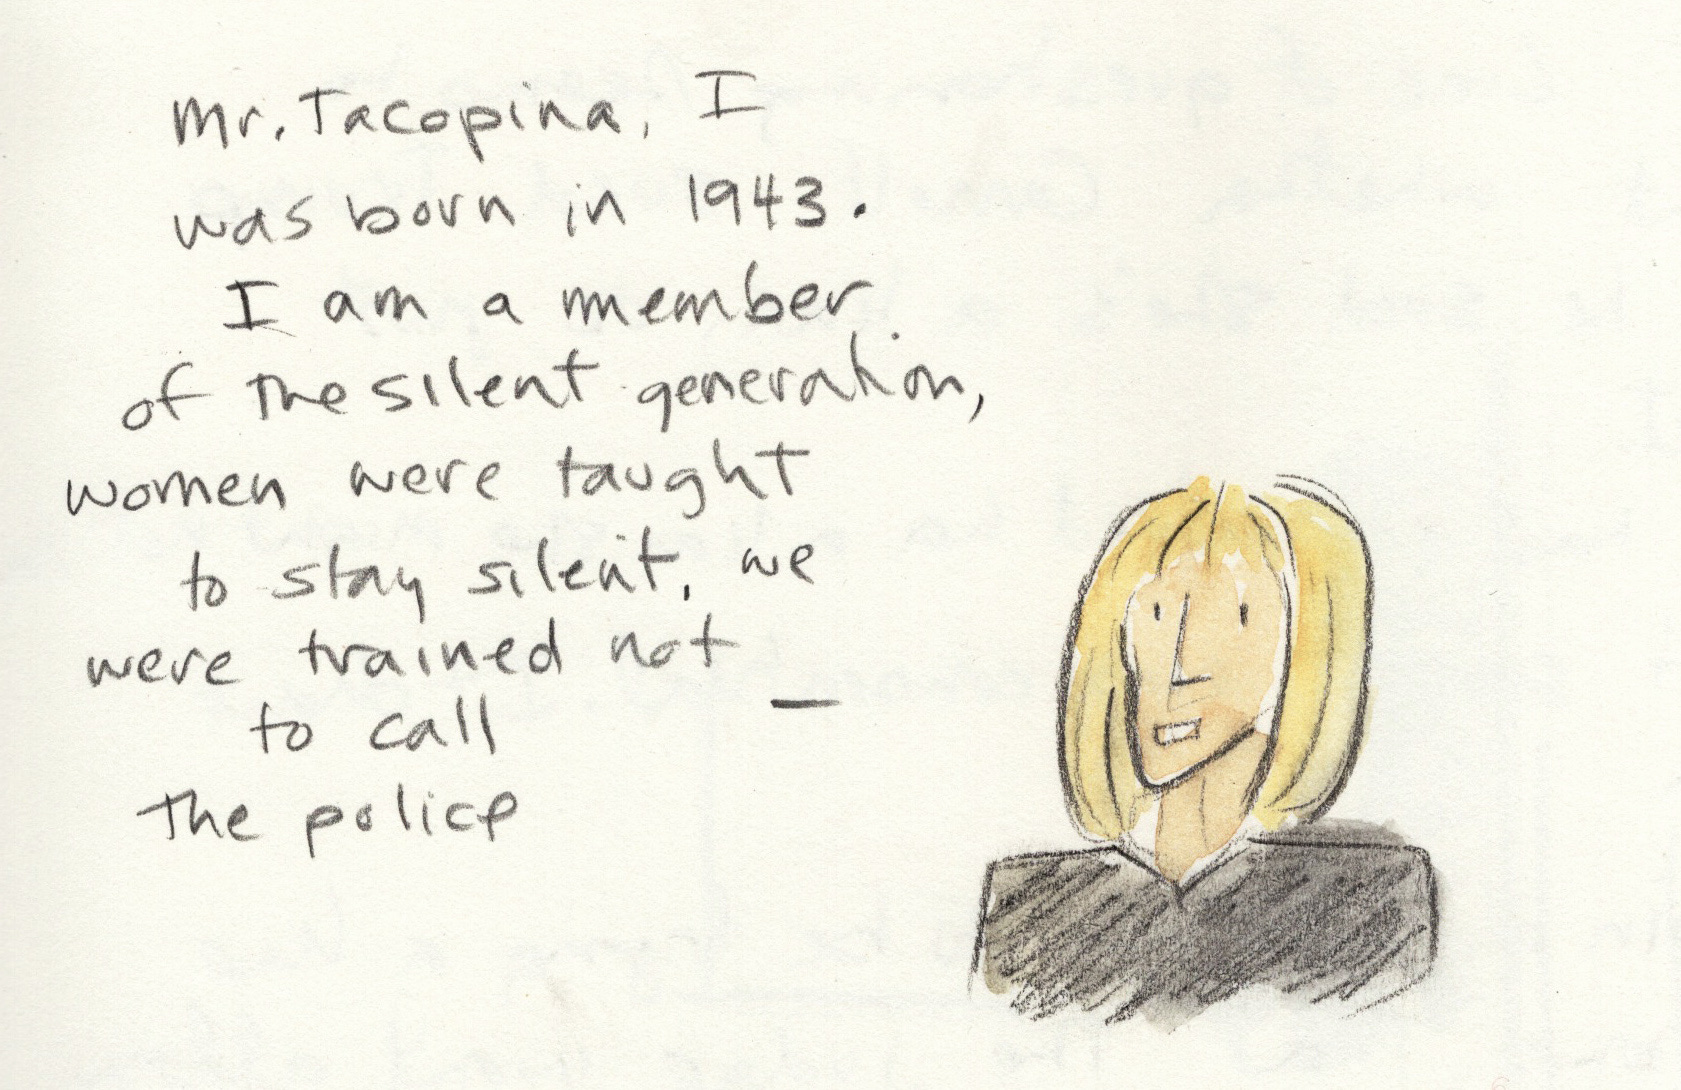 Mr. Tacopina, I
was born in 1943.
I am a member
of the silent generation,
women were taught
to stay silent, we
were trained not
to call —
the police